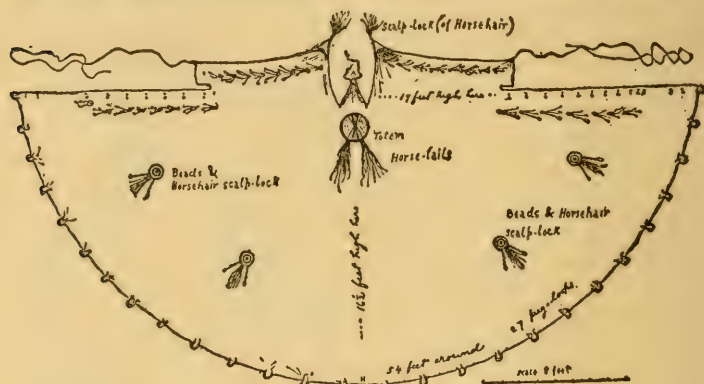 Scalp-lock (of Horsehair)
17 feet high here
Totem
Horse-tails
Beads &
Horsehair scalp-lock
Beads & Horsehair
scalp-lock
16½ feet high here
27 peg-loops.
54 feet around
scale 8 feet